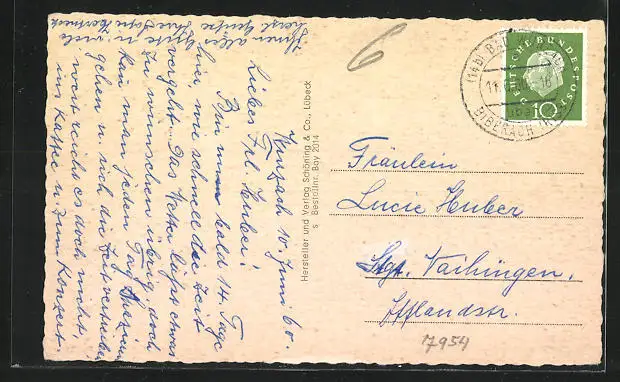 Wurzach 10. Juni 60.
Liebes Frl. Huber!
Bin nun bald 14 Tage
hier, wie schnell die Zeit
vergeht. Das Wetter läßt etwas
zu wünschen übrig, doch
kann man jeden Tag spazieren
gehen u. sich die Zeit vertreiben
wort reicht es doch nicht,
ins Kaffee u. zum Konzert.
Ihnen alles Gute u. viele
herzl. Grüße Ihre
Hersteller und Verlag Schöning & Co., Lübeck
s Bestellnr. Bay 2014
6
DEUTSCHE BUNDESPOST
10
(14b) BAD
11.
BIBERACH
Fräulein
Lucie Huber
Stgt. Vaihingen,
Ifflandstr.
7954